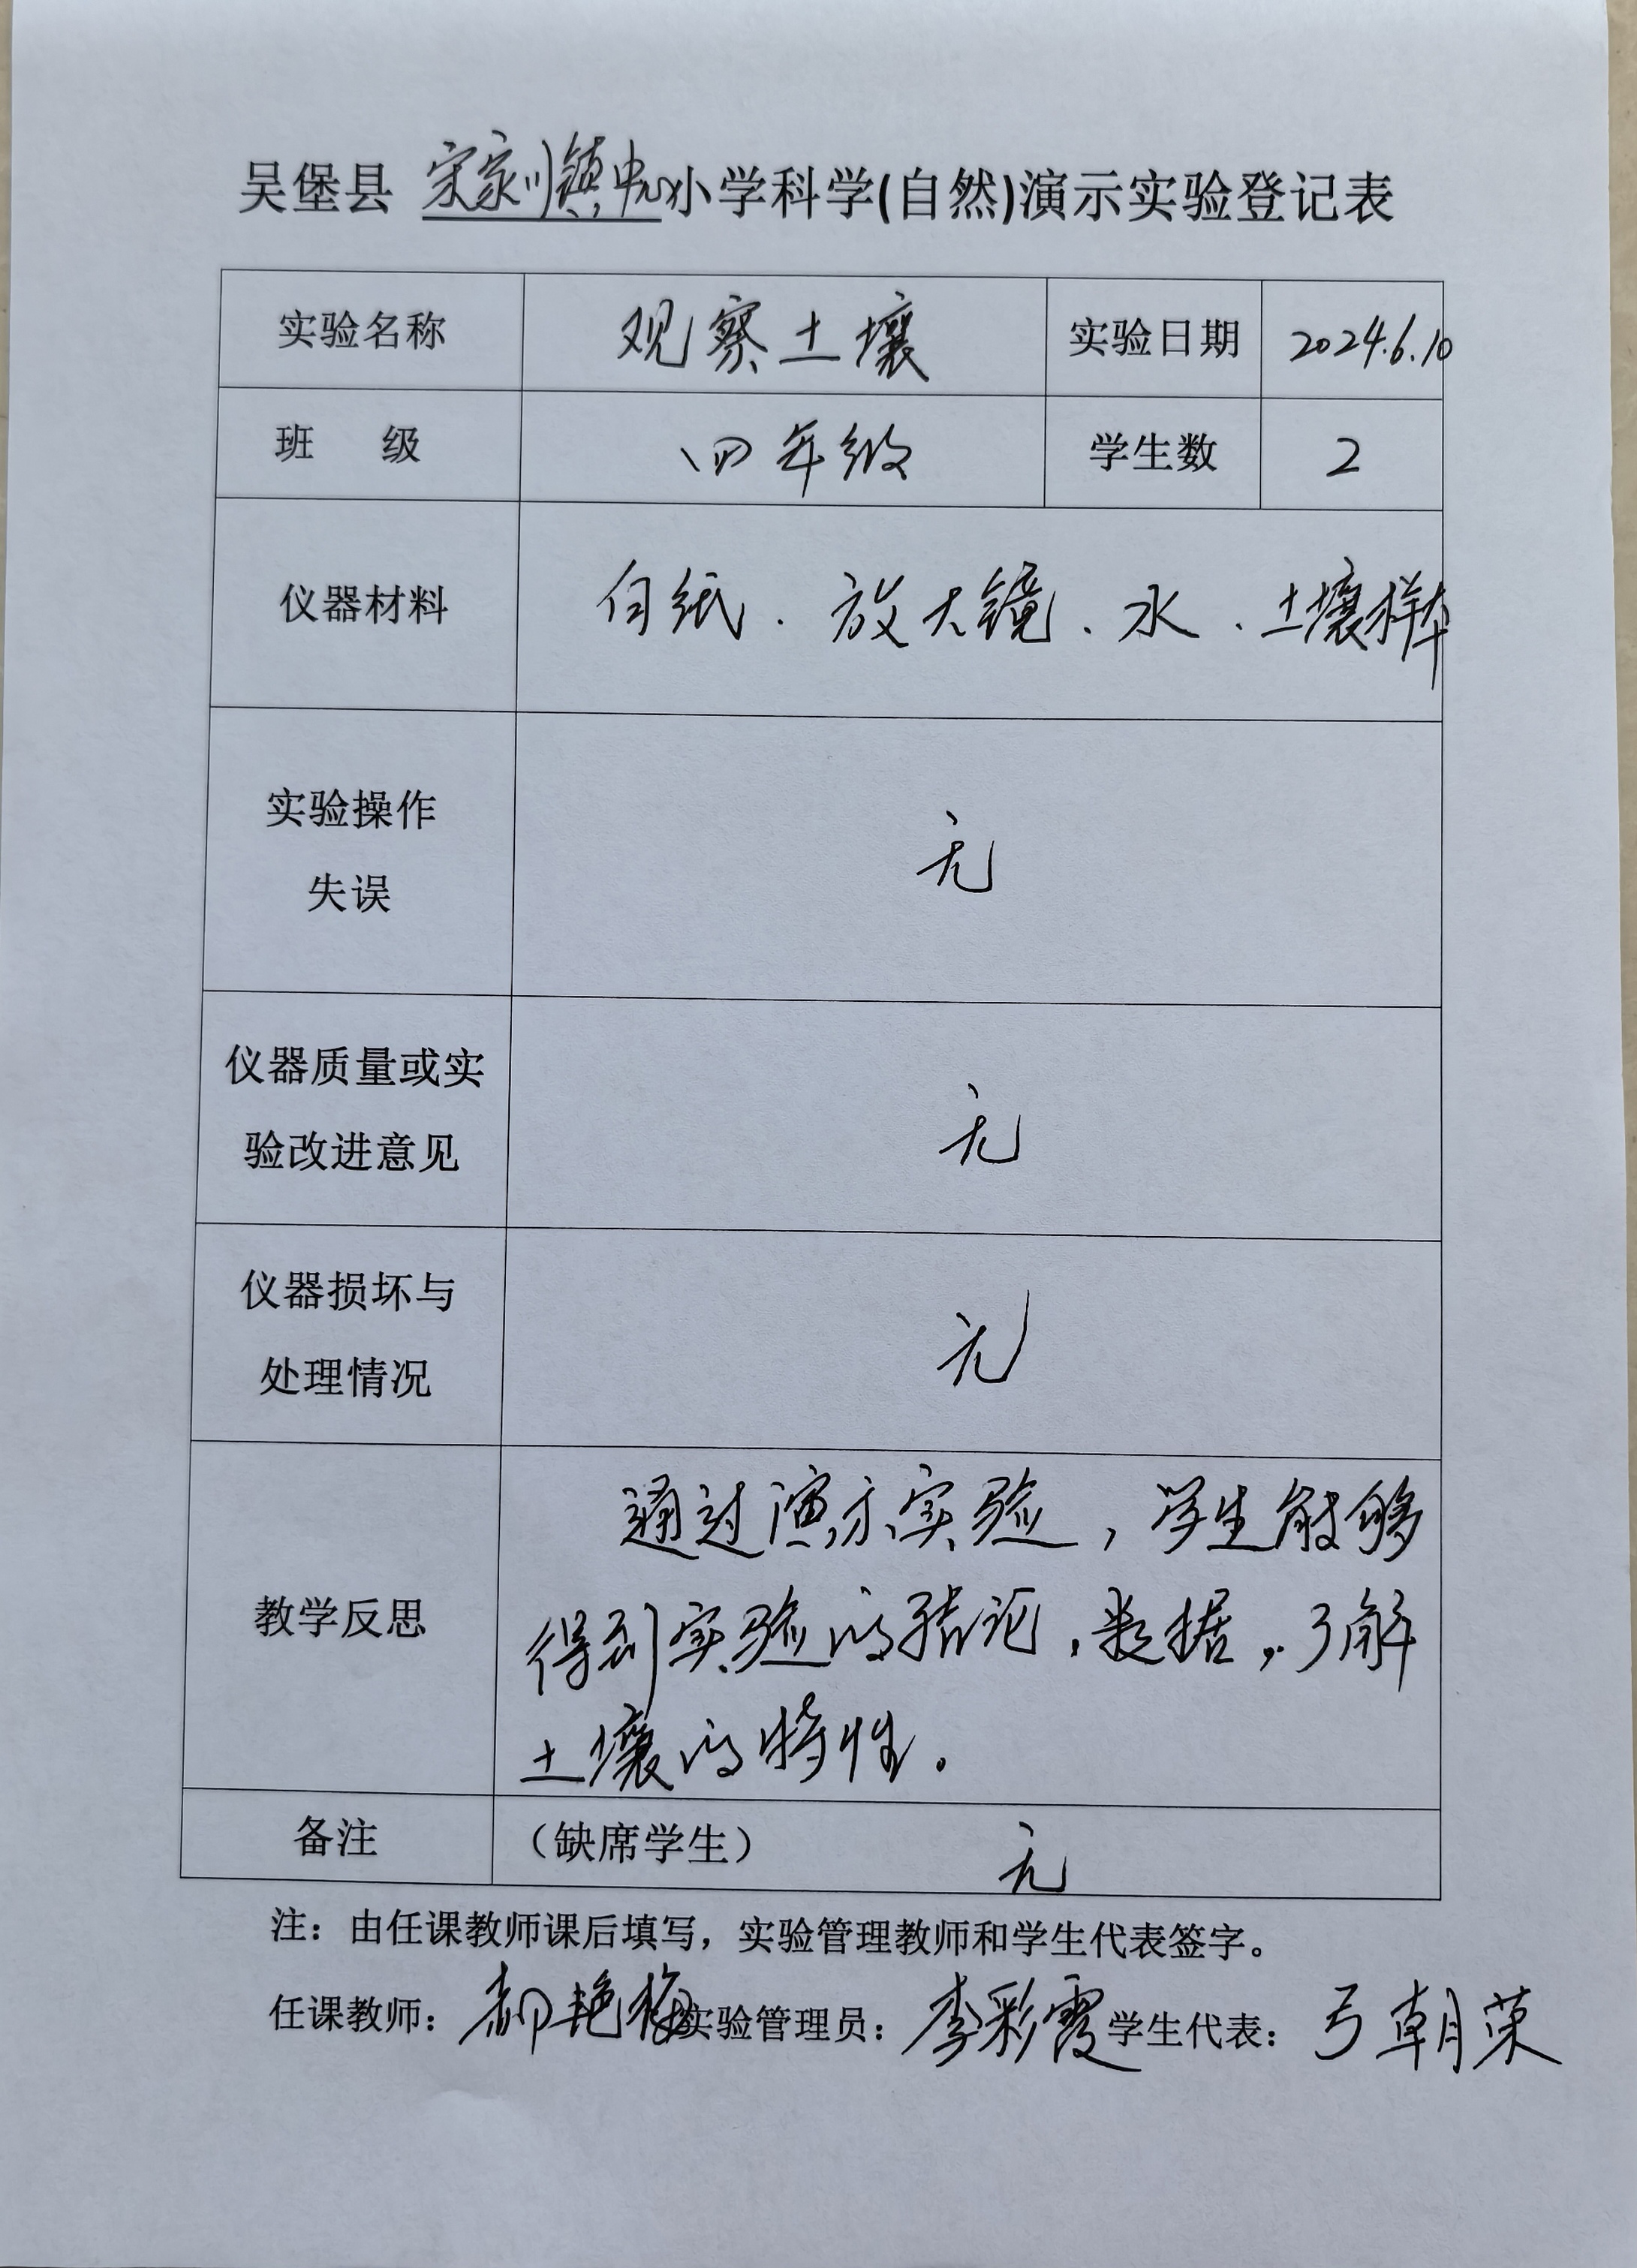 吴堡县 宋家川镇中心小学科学(自然)演示实验登记表
实验名称 观察土壤 实验日期 2024.6.10
班 级 四年级 学生数 2
仪器材料 白纸、放大镜、水、土壤样本
实验操作
失误
无
仪器质量或实
验改进意见
无
仪器损坏与
处理情况
无
教学反思
通过演示实验，学生能够
得到实验的结论，数据，了解
土壤的特性。
备注 （缺席学生） 无
注：由任课教师课后填写，实验管理教师和学生代表签字。
任课教师：郝艳梅 实验管理员：李彩霞 学生代表：弓朝荣